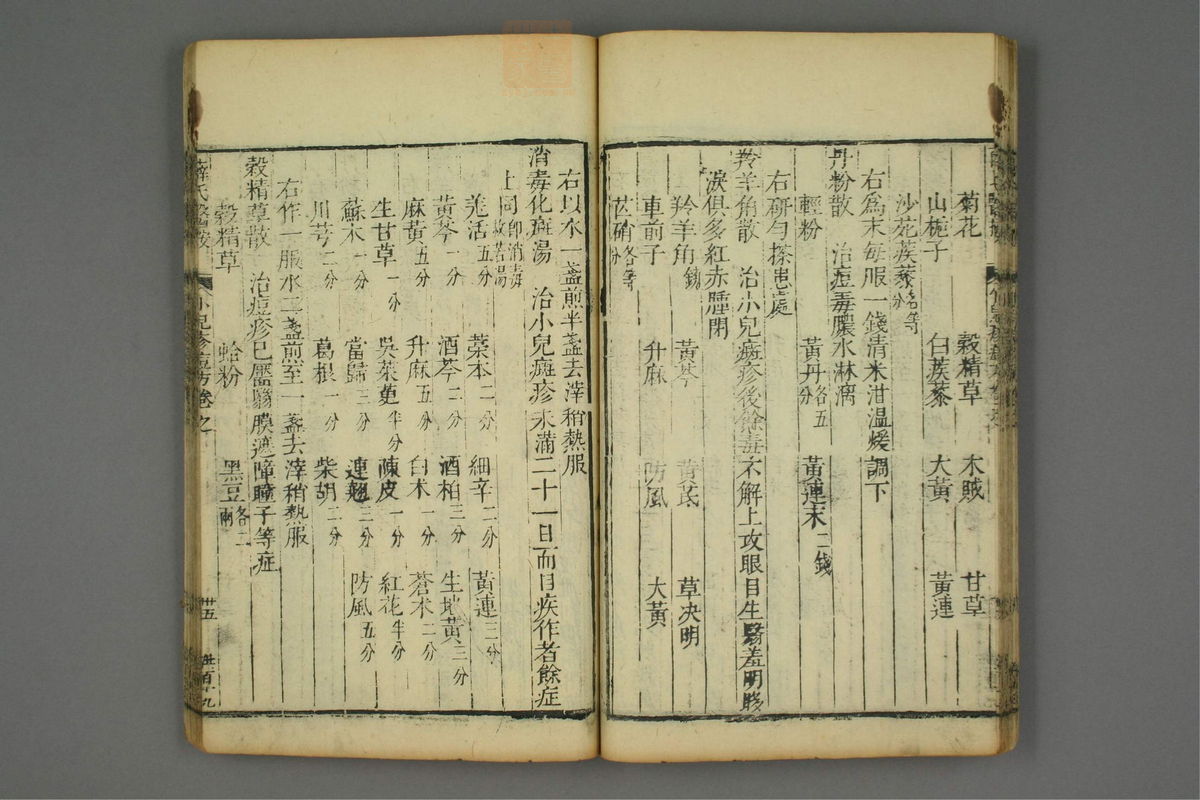 菊花 穀精草 木賊 甘草
山梔子 白蒺藜 大黃 黃連
沙苑蒺藜各等分
右為末每服一錢清米泔溫煖調下
丹粉散 治痘毒膿水淋漓
輕粉 黃丹各五分 黃連末二錢
右研勻搽患處
羚羊角散 治小兒斑疹後餘毒不解上攻眼目生翳羞明眵
淚俱多紅赤腫閉
羚羊角鎊 黃芩 黃芪 草決明
車前子 升麻 防風 大黃
芒硝各等分
右以水一盞煎半盞去滓稍熱服
消毒化斑湯 治小兒斑疹未滿二十一日而目疾作者餘症
上同即消毒救苦湯
羗活五分 藁本二分 細辛二分 黃連三分
黃芩一分 酒芩二分 酒柏三分 生地黃三分
麻黃五分 升麻五分 白术一分 蒼术二分
生甘草一分 吳茱萸半分 陳皮一分 紅花半分
蘇木一分 當歸三分 連翹三分 防風五分
川芎二分 葛根一分 柴胡二分
右作一服水二盞煎至一盞去滓稍熱服
穀精草散 治痘疹已靨翳膜遮障瞳子等症
穀精草 蛤粉 黑豆各二兩
薛氏醫按 小兒疹痘方卷之 卅五